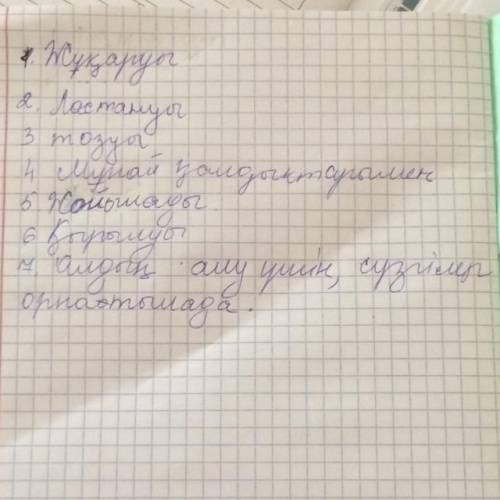 1. Жұқаруы
2. Ластануы
3 тозуы
4 Мұнай қалдықтарымен
5 Жойылады.
6 Қырылуы
7. алдың алу үшін, сүзгілер
орнатылада.